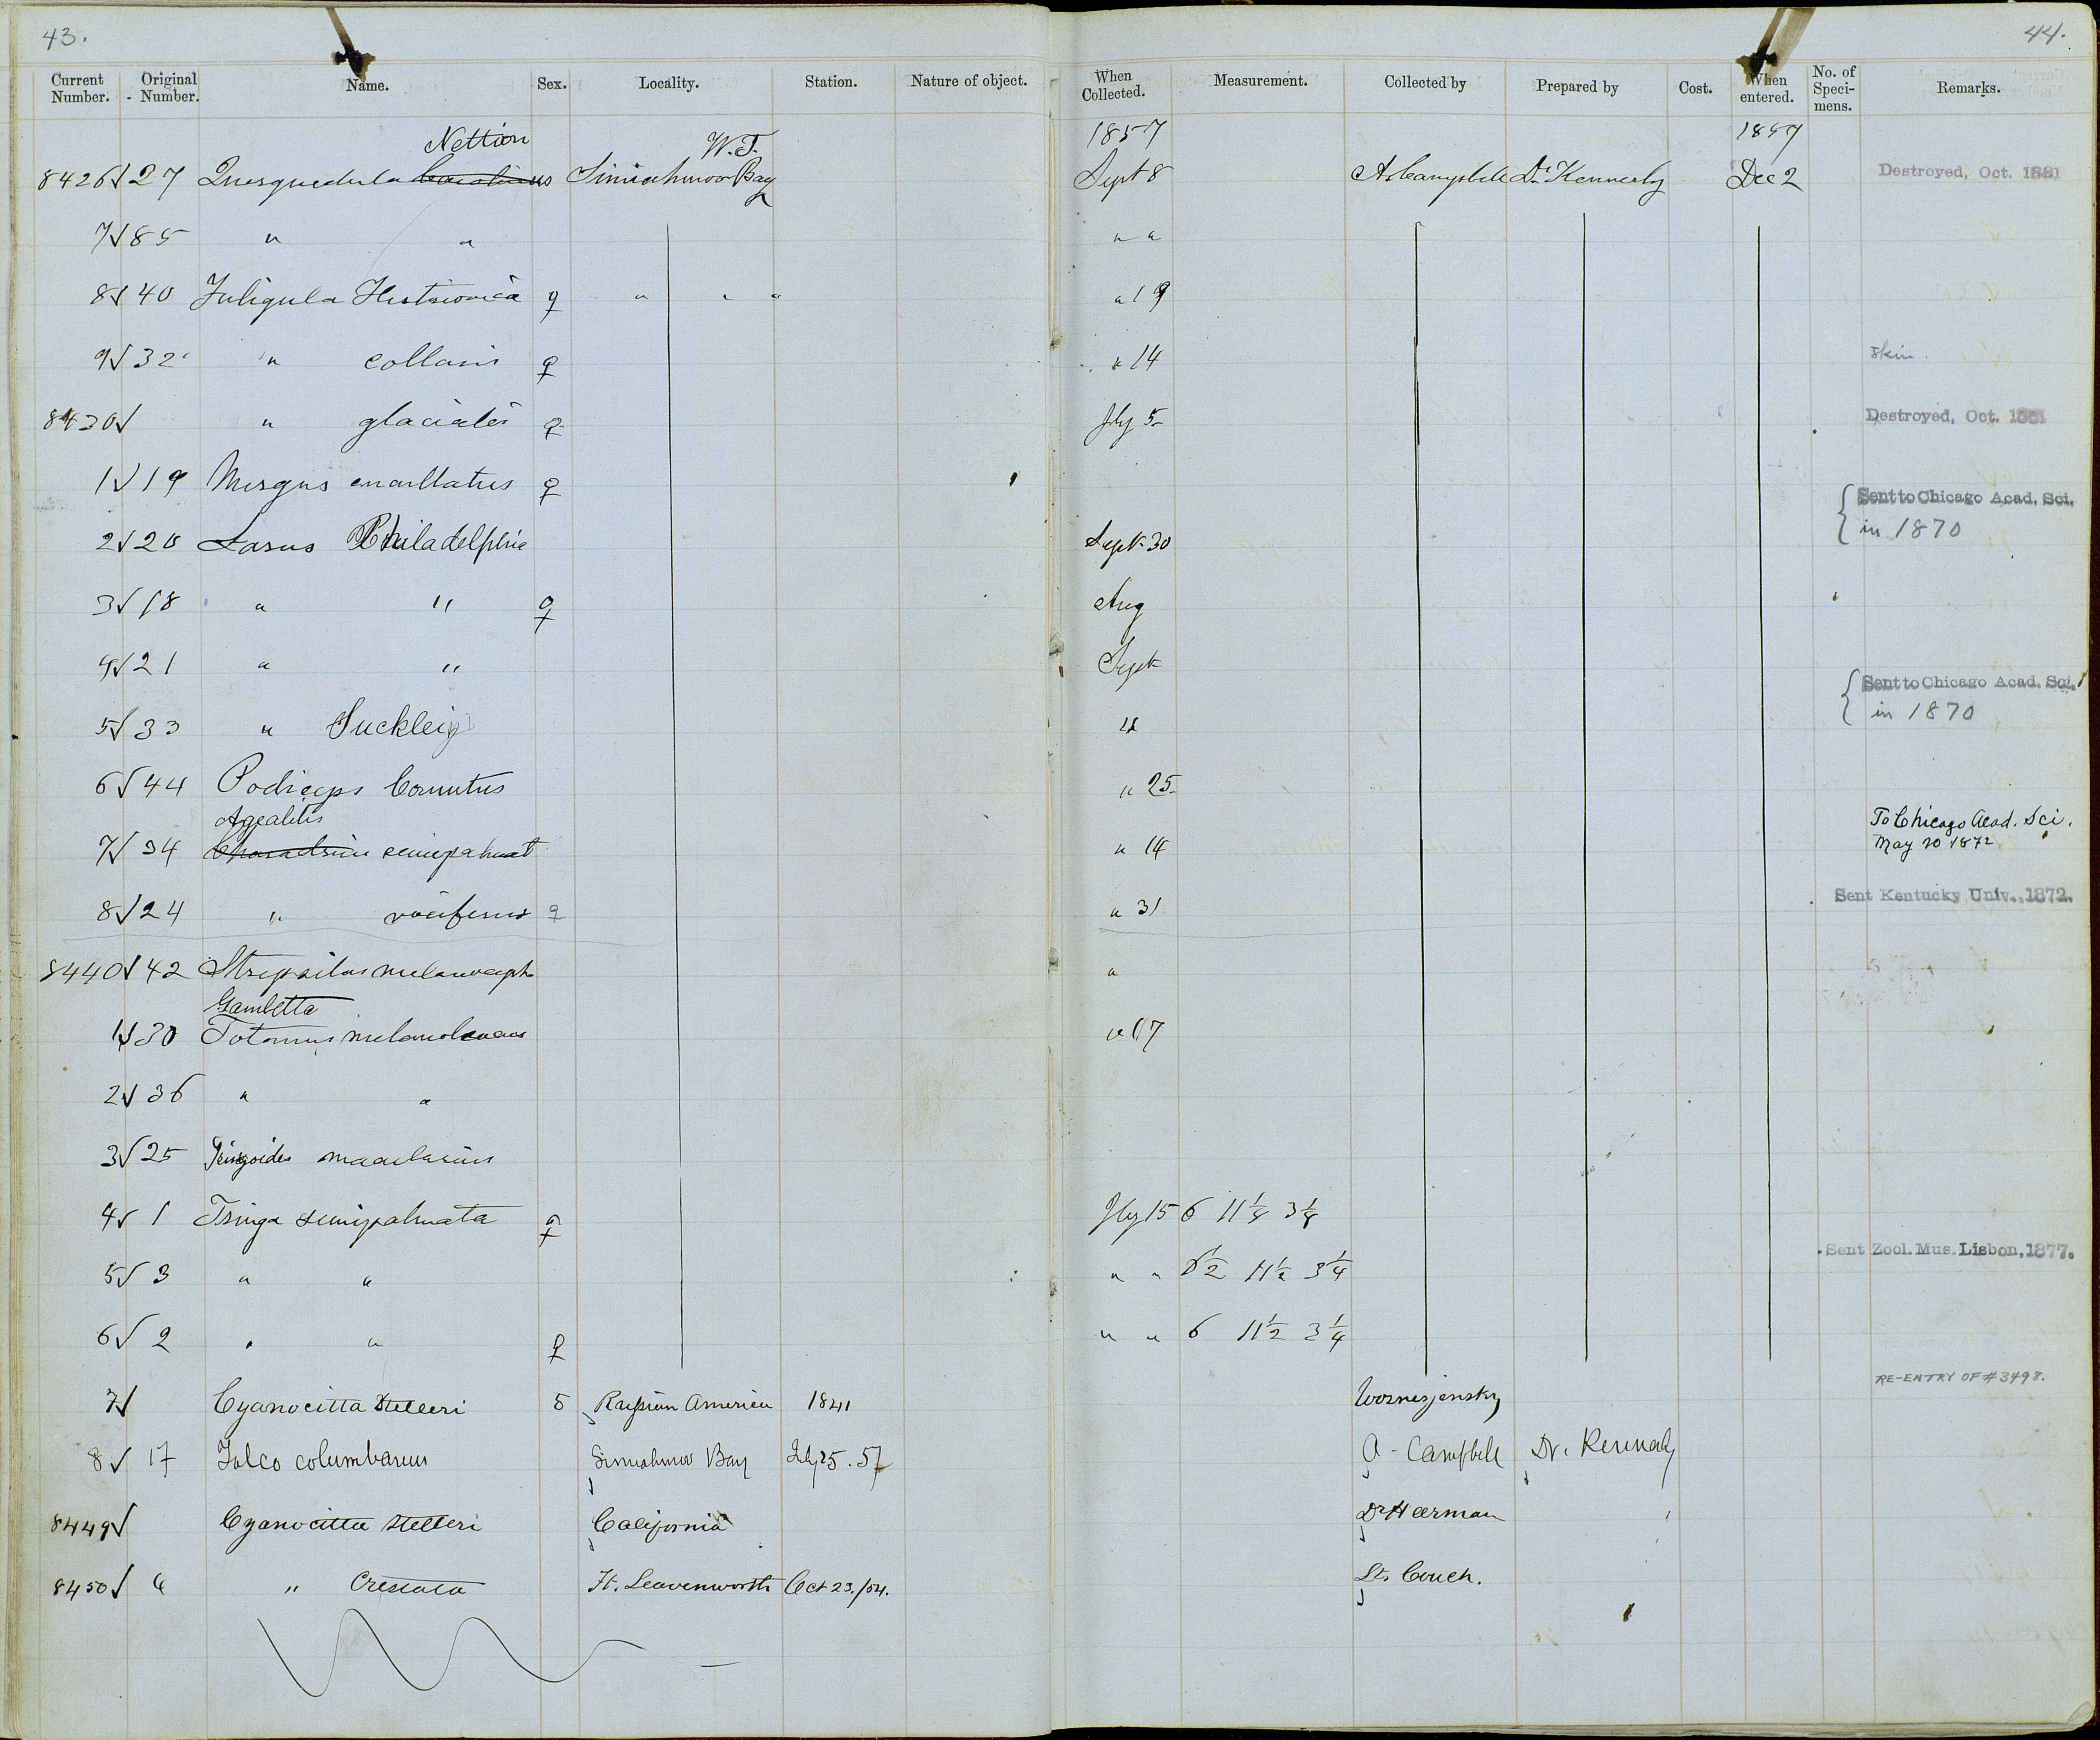 43.
44.
Current Number. Original Number. Name. Sex. Locality. Station. Nature of object. When Collected. Measurement. Collected by Prepared by Cost. When entered. No. of Speci- mens. Remarks.
Nettion W.T. 1857 1857
8426 √ 27 Querquedula Carolinus Simiahmoo Bay Sept 8 A. Campbell Dr Kennerly Dec 2 Destroyed, Oct. 1881
7 √ 85 " " " "
8 √ 40 Fuligula Histrionica ♀ " " " " 19
9 √ 32 " collaris ♀ " 14 skin.
8430 √ " glacialis ♀ Jly 5 Destroyed, Oct. 1881
1 √ 19 Mergus cucullatus ♀ Sent to Chicago Acad. Sci.
2 √ 20 Larus Philadelphia Sept 30 in 1870
3 √ 18 " " ♀ Aug
4 √ 21 " " Sept
Sent to Chicago Acad. Sci.
5 √ 33 " Suckleyi " in 1870
6 √ 44 Podiceps Cornutus " 25
Agealitis To Chicago Acad. Sci.
7 √ 34 Charadrius semipalmat " 14 May 20 1872
8 √ 24 " vociferus ♀ " 31 Sent Kentucky Univ., 1872.
8440 √ 42 Strepsilas melanoceph "
Gambetta
1 √ 30 Totanus melanoleucus " 17
2 √ 36 " "
3 √ 25 Tringoides macularius
4 √ 1 Tringa semipalmata ♀ Jly 15 6 11 1/8 3 1/8
5 √ 3 " " " " 6 1/2 11 1/2 3 1/4 Sent Zool. Mus. Lisbon, 1877.
6 √ 2 " " ♀ " " 6 11 1/2 3 1/4
7 √ Cyanocitta Stelleri 5 Russian America 1841 Wosnesjensky RE-ENTRY OF #3498.
8 √ 17 Falco columbarius Simiahmoo Bay Jly 25. 57 A. Campbell Dr. Kennerly
8449 √ Cyanocitta stelleri California Dr Heerman
8450 √ " Cristata Ft. Leavenworth Oct 23./54. Lt. Couch.